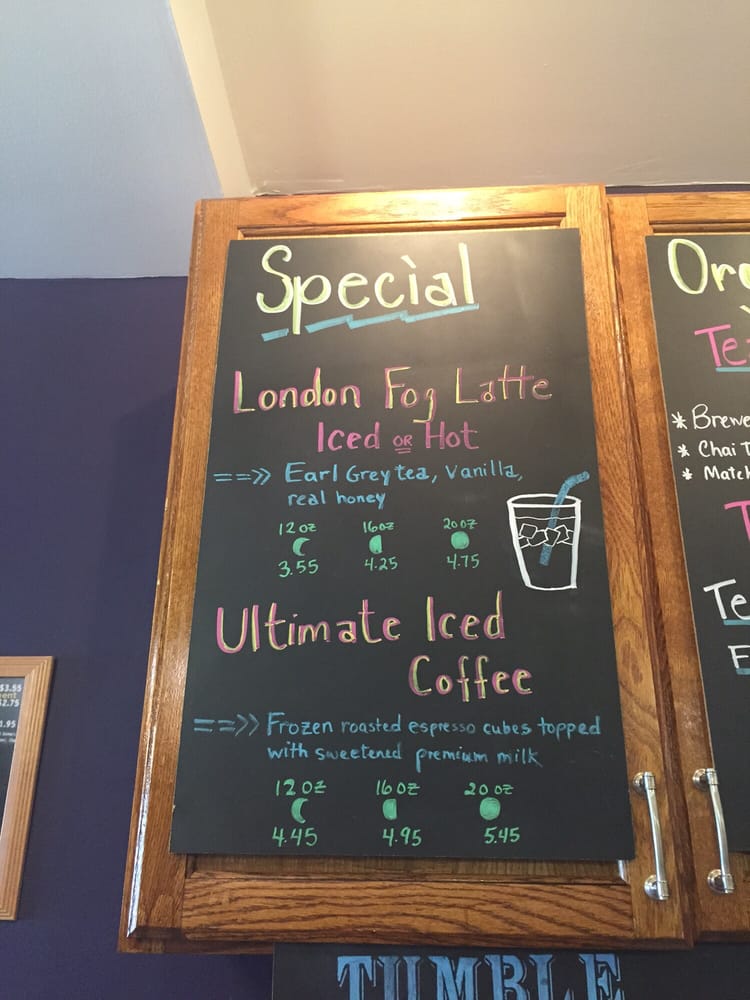 Special
London Fog Latte
Iced OR Hot
==>> Earl Grey tea, Vanilla,
real honey
12 oz 16oz 20oz
3.55 4.25 4.75
Ultimate Iced
Coffee
==>> Frozen roasted espresso cubes topped
with sweetened premium milk
12 oz 16 oz 20 oz
4.45 4.95 5.45
* Brewe
* Chai T
* Match
Te
$3.55
$2.75
1.95
TUMBLE